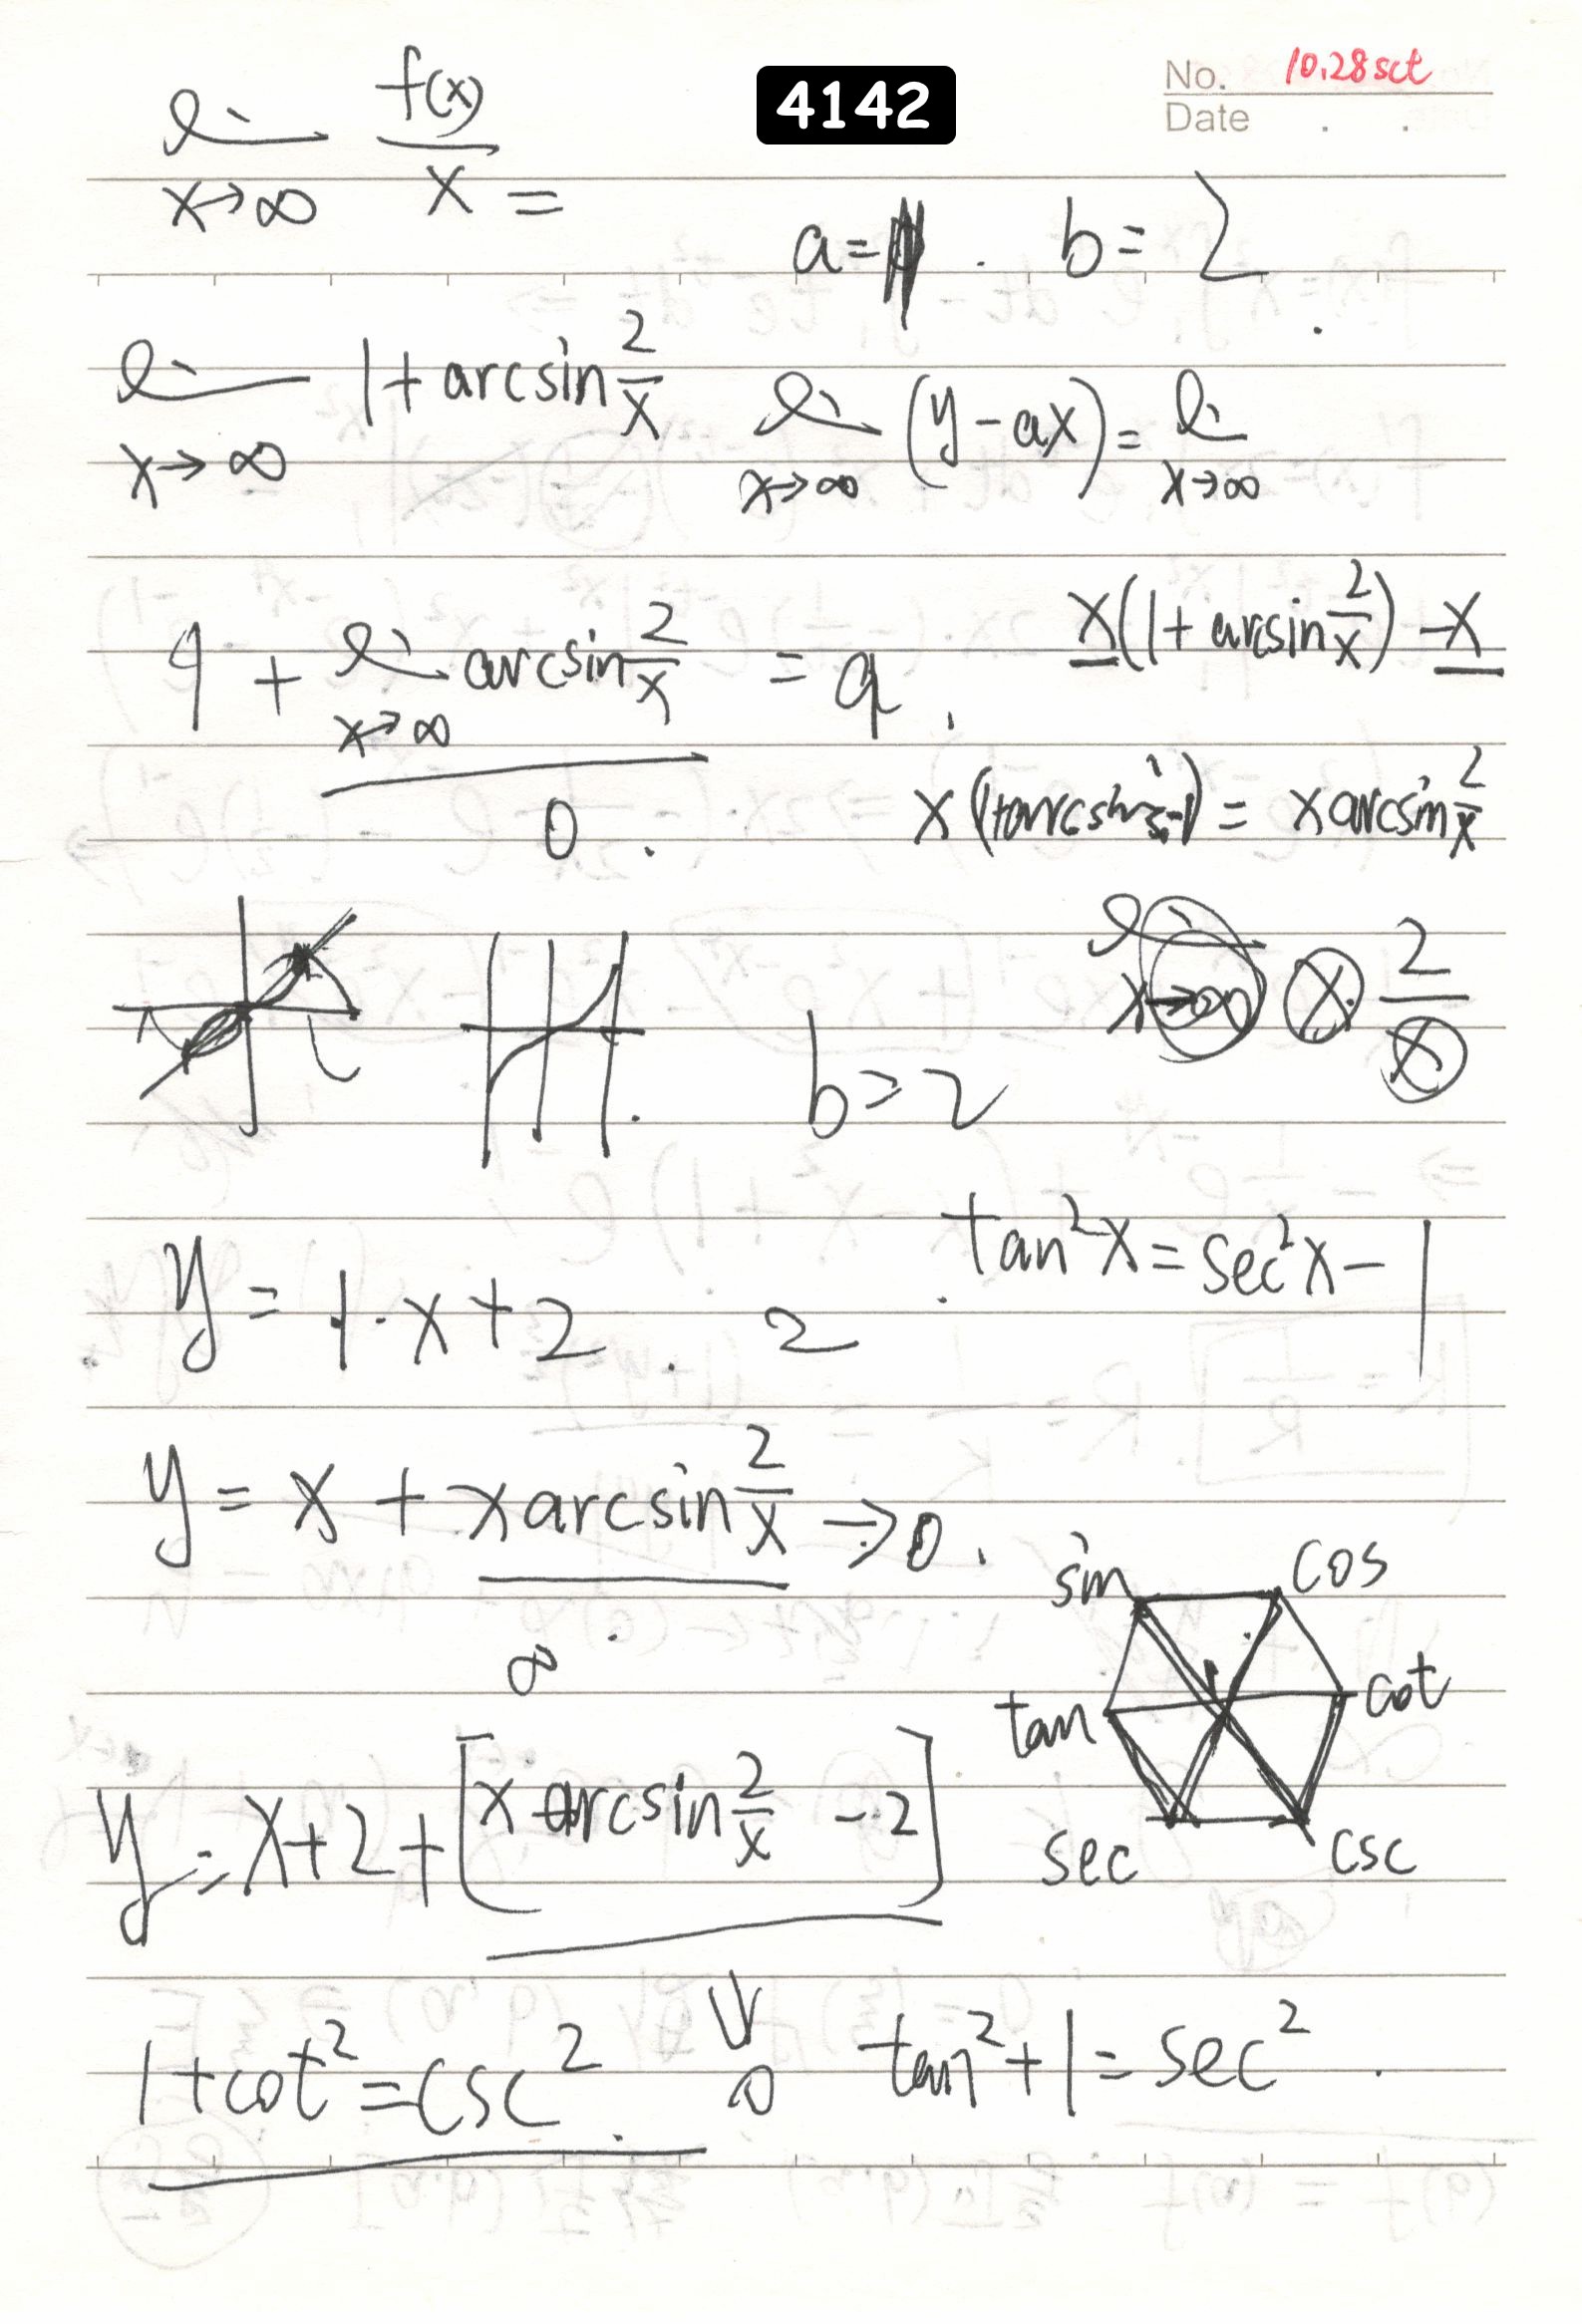 4142
No. 10.28 sct
Date . .
lim x→∞ f(x)/x =
a=1 . b=2
lim x→∞ 1+arcsin 2/x
lim x→∞ (y-ax) = lim x→∞
x(1+arcsin 2/x) -x
1 + lim x→∞ arcsin 2/x = a .
0 .
x(1+arcsin 2/x -1) = x arcsin 2/x
lim x→∞ x · 2/x
b=2
tan²x = sec²x-1
y = 1·x+2 . 2
y = x + x arcsin 2/x → 0 .
∞
sin cos
tan 1 cot
sec csc
y = x+2+[x arcsin 2/x -2]
↓
0
1+cot²=csc² . tan²+1=sec² .